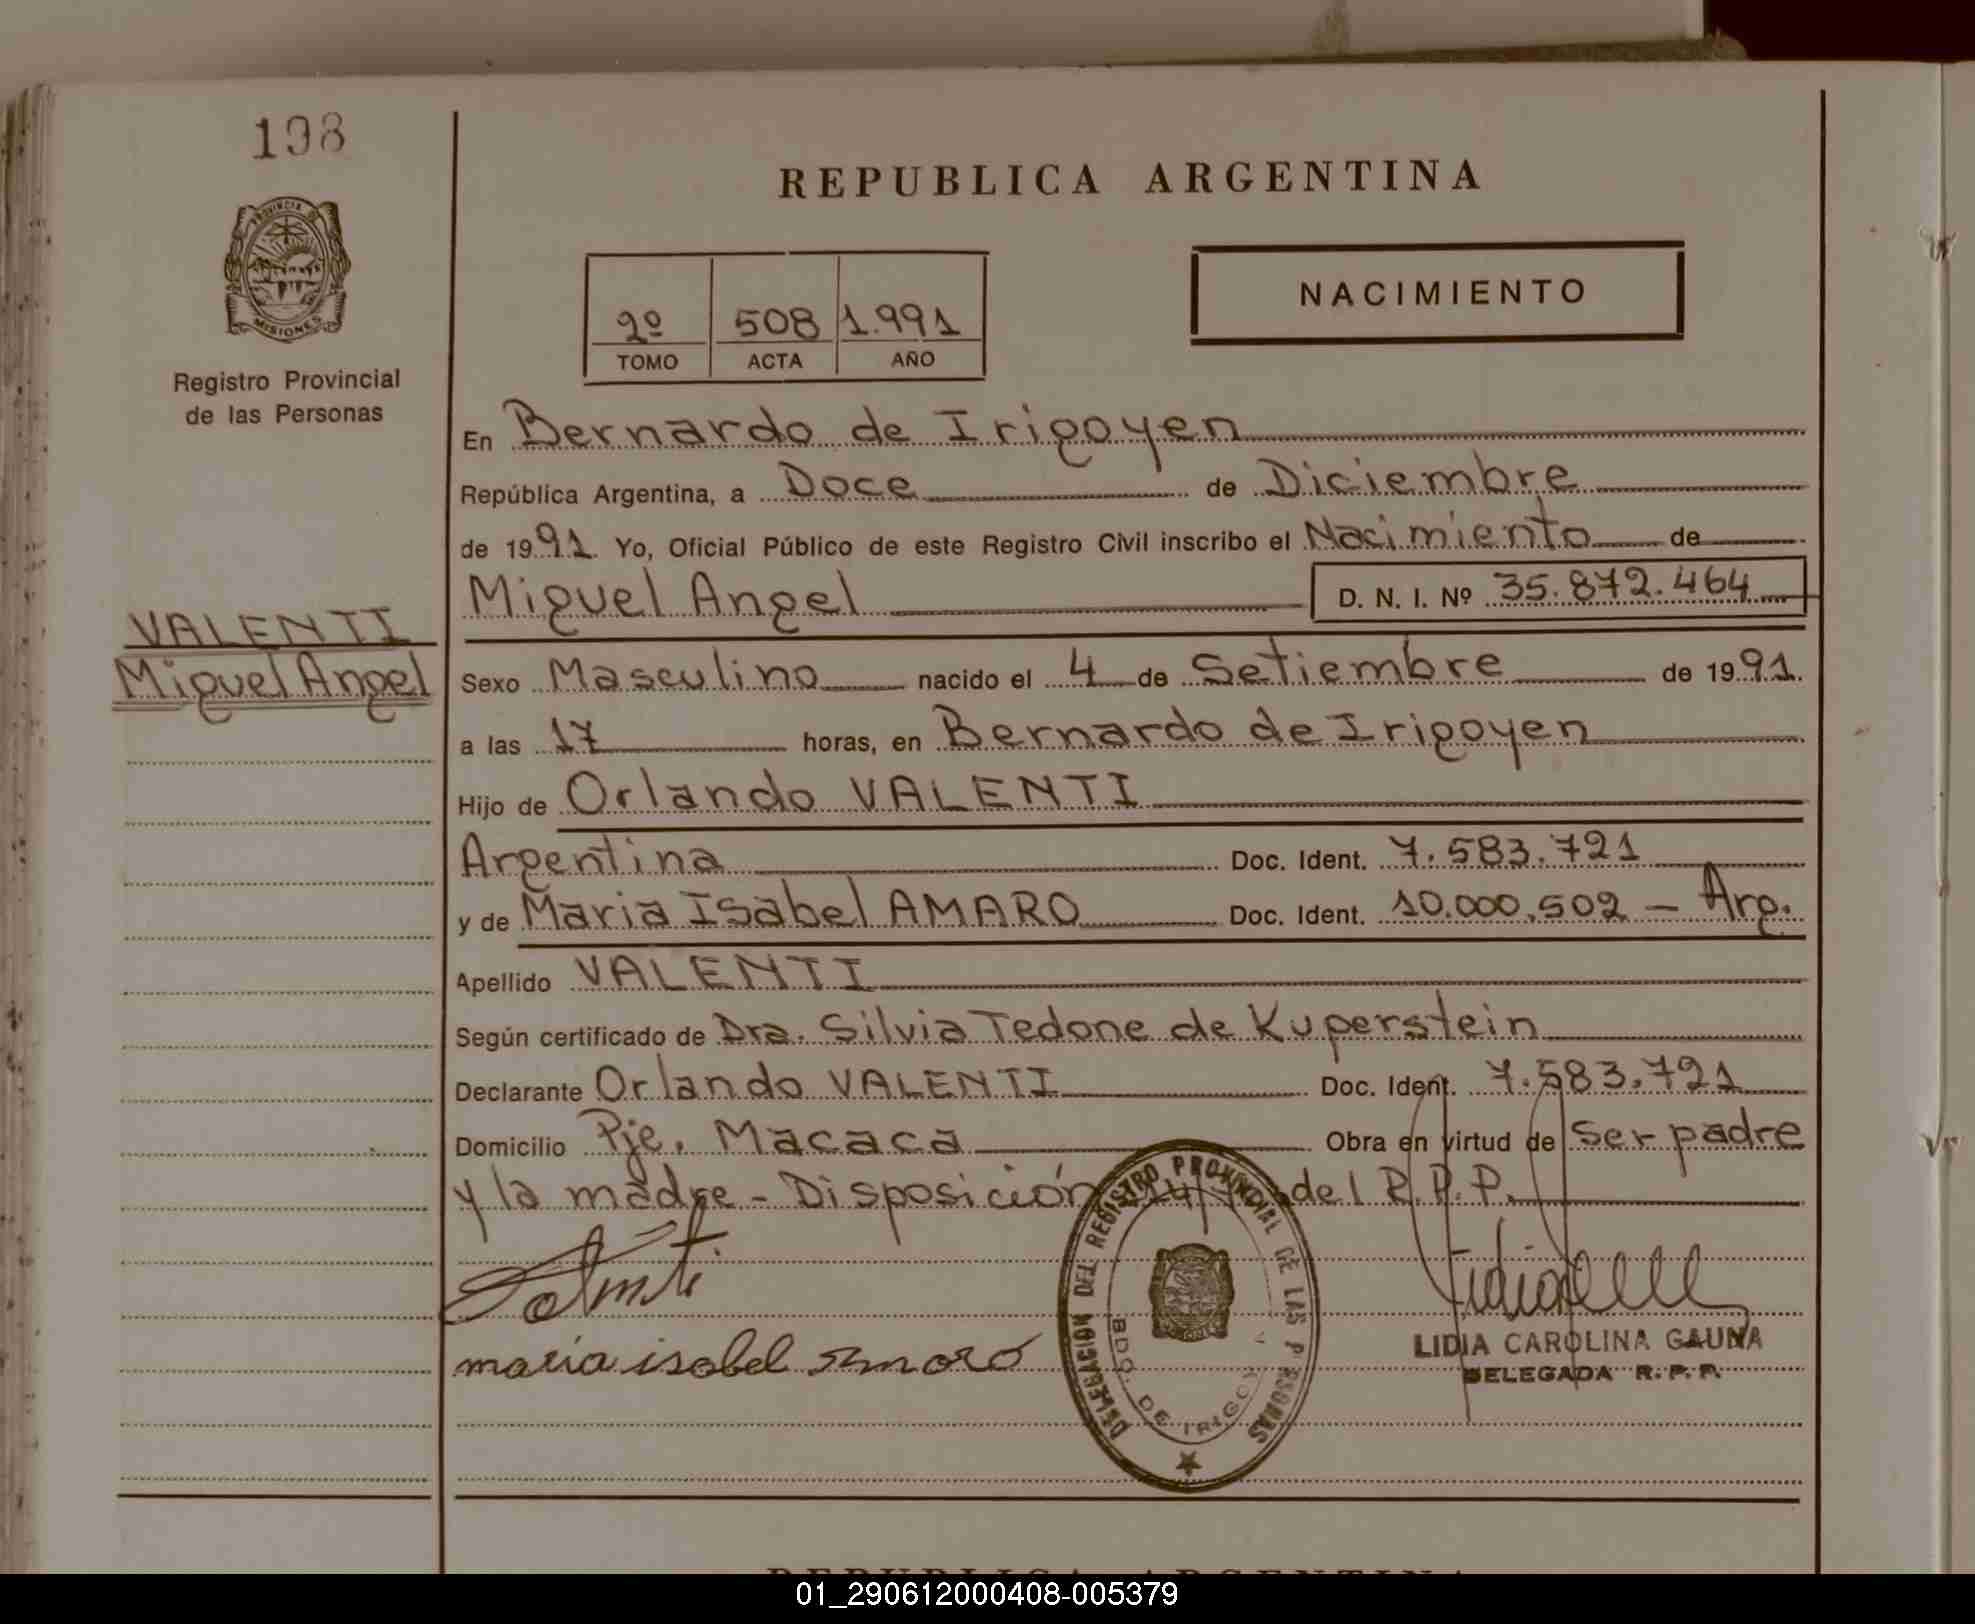 198
REPUBLICA ARGENTINA
PROVINCIA DE
MISIONES
Registro Provincial
de las Personas
2º 508 1.991
TOMO ACTA AÑO
NACIMIENTO
En Bernardo de Irigoyen
República Argentina, a Doce de Diciembre
de 1991. Yo, Oficial Público de este Registro Civil inscribo el Nacimiento de
Miguel Angel D. N. I. Nº 35.872.464
VALENTI
Miguel Angel
Sexo Masculino nacido el 4 de Setiembre de 1991.
a las 17 horas, en Bernardo de Irigoyen
Hijo de Orlando VALENTI
Argentina Doc. Ident. 7.583.721
y de Maria Isabel AMARO Doc. Ident. 10.000.502 - Arg.
Apellido VALENTI
Según certificado de Dra. Silvia Tedone de Kuperstein
Declarante Orlando VALENTI Doc. Ident. 7.583.721
Domicilio Pje. Macaca Obra en virtud de Ser padre
y la madre - Disposición del R.P.P.
maria isabel amaro
DELEGACION DEL REGISTRO PROVINCIAL DE LAS PERSONAS
BDO. DE IRIGOY
LIDIA CAROLINA GAUNA
DELEGADA R. P. P.
REPUBLICA ARGENTINA
01_290612000408-005379